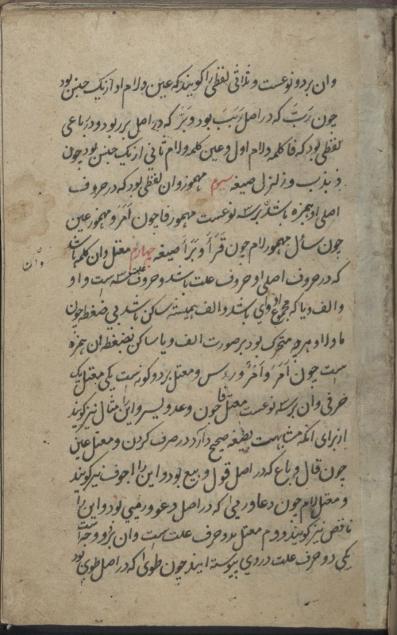 وان بر دو نوعست و ثلاثی لفظی را گویند که عین و لام او از یک جنس بود
چون رَبَّ که در اصل رَبَبَ بود و بَرَّ که در اصل برر بود و در رباعی
لفظی بود که فا کلمه و لام اول و عین کلمه و لام ثانی از یک جنس بود چون
ذبذب و زلزل صیغه سیوم مهموز وان لفظی بود که در حروف
اصلی او همزه باشد بر سه نوعست مهموز فا چون اَمَرَ و مهموز عین
چون سأل مهموز لام چون قَرَأَ و بَرَأَ صیغه چهارم معتل وان کلمه باشد
که در حروف اصلی او حروف علت باشد و حروف علت سه است واو
والف و یا که مجموع وای باشد والف همیشه ساکن باشد بی ضغطه چون
ما و لا و هرچه متحرک بود بر صورت الف و یا ساکن بضغطه ان همزه
است چون اَمَرَ و رأس و معتل بر دو گونه است یکی معتل یک
حرفی وان بر سه نوعست معتل فا چون وعد و یسر و این را مثال نیز گویند
از برای انکه مشابهت بصیغه صحیح دارد در صرف کردن و معتل عین
چون قال و باع که در اصل قول و بیع بود و این را اجوف نیز گویند
و معتل لام چون دعا و رمی که در اصل دعو و رمی بود و این را
ناقص نیز گویند و دوم معتل بدو حرف علت است وان بر دو وجه است
یکی دو حرف علت در وی پیوسته ایند چون طوی که در اصل طوی بود